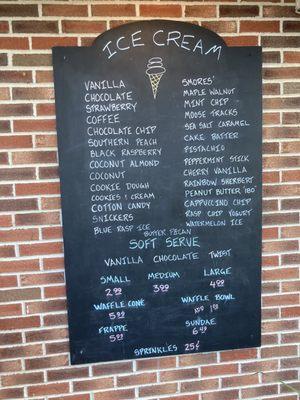 ICE CREAM
VANILLA
CHOCOLATE
STRAWBERRY
COFFEE
CHOCOLATE CHIP
SOUTHERN PEACH
BLACK RASPBERRY
COCONUT ALMOND
COCONUT
COOKIE DOUGH
COOKIES & CREAM
COTTON CANDY
SNICKERS
BLUE RASP ICE
BUTTER PECAN
SMORES'
MAPLE WALNUT
MINT CHIP
MOOSE TRACKS
SEA SALT CARAMEL
CAKE BATTER
PISTACHIO
PEPPERMINT STICK
CHERRY VANILLA
RAINBOW SHERBERT
PEANUT BUTTER
CAPPUCINO CHIP
RASP CHIP YOGURT
WATERMELON ICE
SOFT SERVE
VANILLA CHOCOLATE TWIST
SMALL MEDIUM LARGE
2.99 3.99 4.99
WAFFLE CONE WAFFLE BOWL
5.99 ADD 1.99
FRAPPE SUNDAE
5.99 6.49
SPRINKLES 25¢